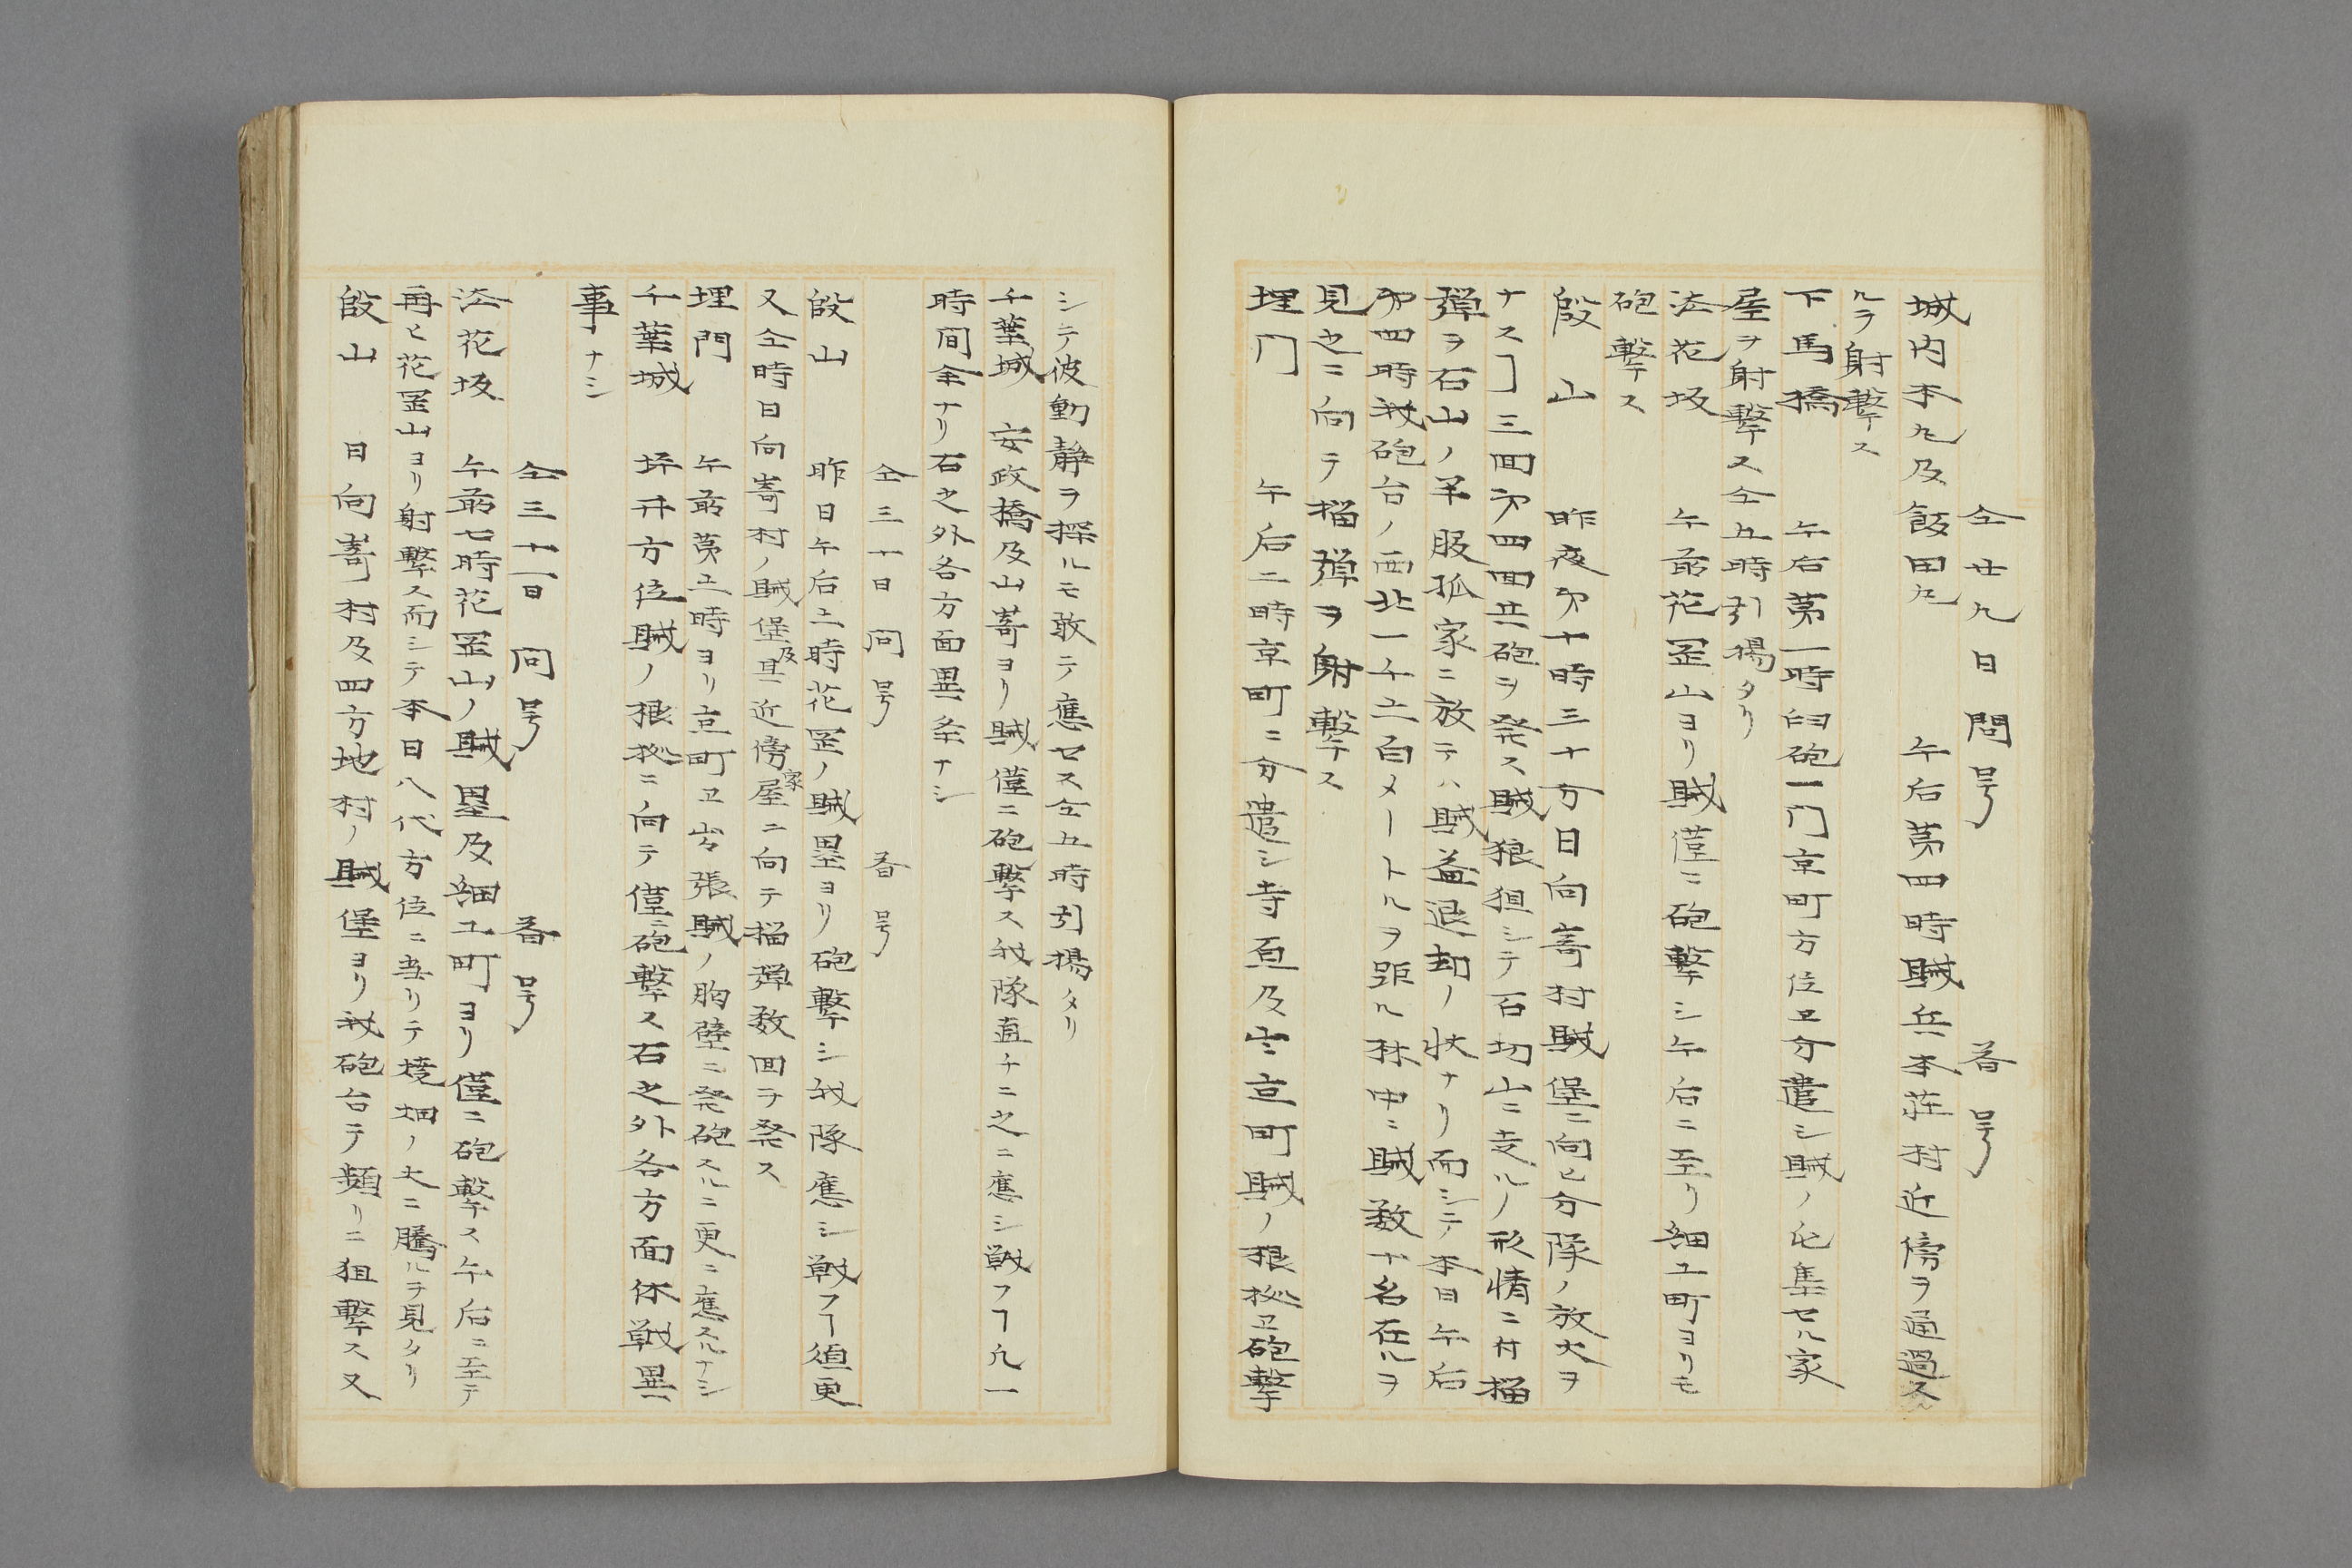 仝廿九日問号　　　　　答号
城内本丸及飯田丸　　午后第四時賊兵本荘村近傍ヲ通過ス
ルヲ射撃ス
下馬橋　　午后第一時臼砲一門京町方位ヱ分遣シ賊ノ屯集セル家
屋ヲ射撃ス仝五時引揚タリ
法花坂　　午前花罡山ヨリ賊僅ニ砲撃シ午后ニ至リ細工町ヨリモ
砲撃ス
段山　　昨夜第十時三十分日向嵜村賊堡ニ向ヒ分隊ノ放火ヲ
ナスヿ三回第四回共砲ヲ発ス賊狼狽シテ石切山ニ走ルノ形情ニ付榴
弾ヲ石山ノ半服孤家ニ放テハ賊益退却ノ状ナリ而シテ本日午后
第四時我砲台ノ西北一千二百メートルヲ距ル林中ニ賊数十名在ルヲ
見之ニ向テ榴弾ヲ射撃ス
埋門　　午后二時京町ニ分遣シ寺原及出京町賊ノ根拠ヱ砲撃
シテ彼動静ヲ探ルモ敢テ應セス仝五時引揚タリ
千葉城　安政橋及山嵜ヨリ賊僅ニ砲撃ス我隊直チニ之ニ應シ戦フヿ凡一
時間余ナリ右之外各方面異条ナシ
仝三十日　問号　　　　答号
段山　　昨日午后二時花罡ノ賊塁ヨリ砲撃シ我隊應シ戦フヿ須更
又仝時日向嵜村ノ賊堡及其近傍家屋ニ向テ榴弾数回ヲ発ス
埋門　　午前第二時ヨリ京町ヱ出張賊ノ胸壁ニ発砲スルニ更ニ應スルナシ
千葉城　　坪井方位賊ノ根拠ニ向テ僅ニ砲撃ス右之外各方面休戦異
事ナシ
仝三十一日　問号　　　　答号
法花坂　　午前七時花罡山ノ賊塁及細工町ヨリ僅ニ砲撃ス午后ニ至テ
再ヒ花罡山ヨリ射撃ス而シテ本日八代方位ニ当リテ焼烟ノ大ニ騰ルヲ見タリ
段山　　日向嵜村及四方地村ノ賊堡ヨリ我砲台ヲ頻リニ狙撃ス又